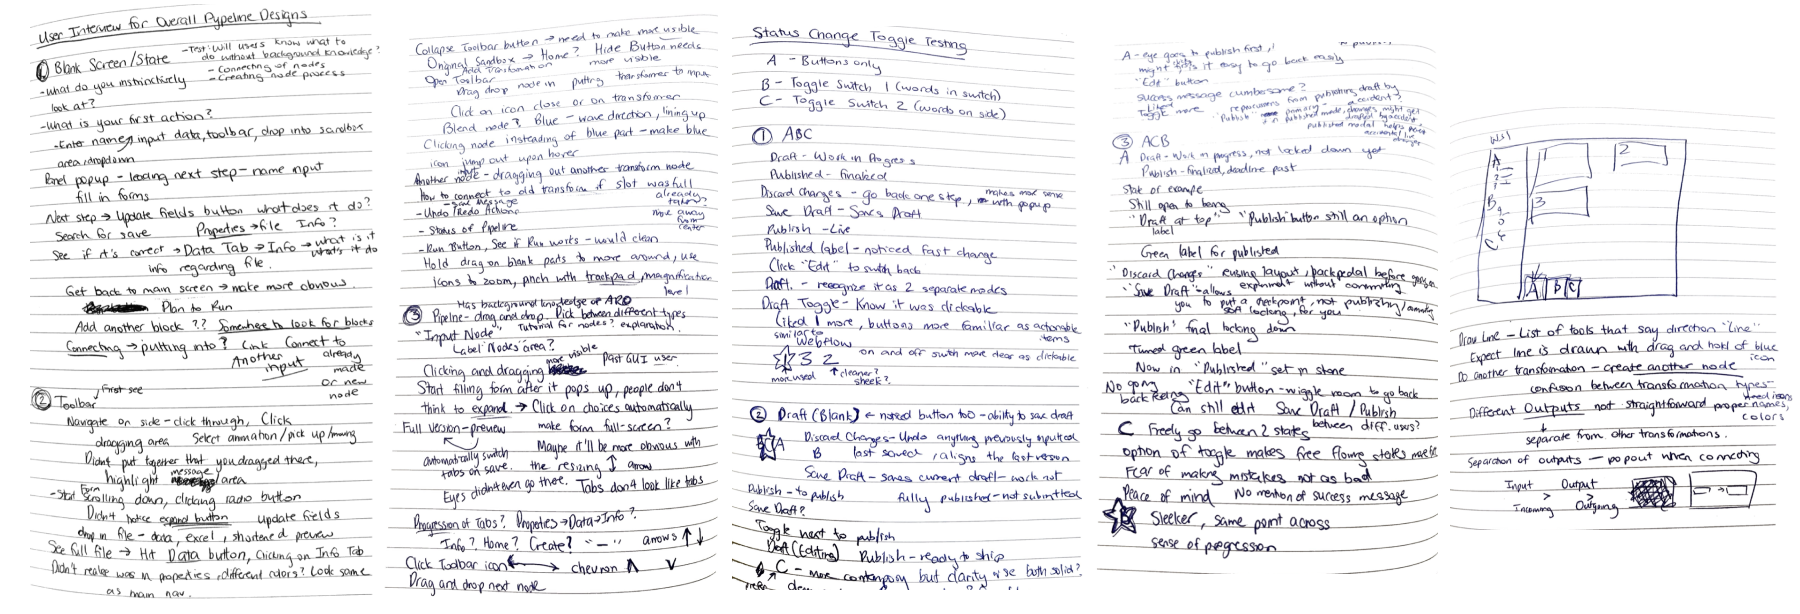 User Interview for Overall Pypeline Designs
① Blank Screen/State
-Test: Will users know what to
do without background knowledge?
- Connecting of nodes
- Creating node process
-What do you instinctively
look at?
-What is your first action?
-Enter name, input data, toolbar, drop into sandbox
area, dropdown
Panel popup - leading next step - name input
fill in forms
Next step → Update fields button what does it do?
Search for save Properties → file Info?
See if it's correct → Data Tab → Info → what is it
what's it do
info regarding file.
Get back to main screen → make more obvious.
Plan to Run
Add another block ?? Somewhere to look for blocks
Connecting → putting into? Link Connect to
Another input
already made or new node
② Toolbar
First see
Navigate on side - click through, Click
dragging area Select animation/pick up/moving
Didn't put together that you dragged there,
highlight message area
-Start Form Scrolling down, clicking radio button
Didn't notice expand button update fields
drop in file - data, excel, shortened preview
See full file → Hit Data button, Clicking on Info Tab
Didn't realize was in properties, different colors? Look same
as main nav.
Collapse Toolbar button → need to make more visible
Original Sandbox → Home? Hide Button needs
more visible
Open Toolbar Add Transformation
Drag drop node in putting transformer to input
Click on icon close or on transformer
Blend node? Blue - wave direction, lining up
Clicking node instead of blue part - make blue
icon jump out upon hover
Another node - dragging out another transform node
How to connect to old transform if slot was full
already taken?
-Undo/Redo Actions
move away from center
- Status of Pipeline
-Run Button, See if Run works - would clean
Hold drag on blank parts to move around, use
icons to zoom, pinch with trackpad, magnification
level
③ Has background knowledge of ARO
Pipelne - drag and drop. Pick between different types
"Input Node" Tutorial for nodes? explanation.
Label "Nodes" area?
Clicking and dragging more visible Past GUI user
Start filling form after it pops up, people don't
think to expand → Click on choices automatically
Full version - preview make form full-screen?
automatically switch
tabs on save.
Maybe it'll be more obvious with
the resizing ↕ arrow
Eyes didn't even go there. Tabs don't look like tabs
Progression of Tabs? Properties → Data → Info?
Info? Home? Create? "—" arrows ↑↓
Click Toolbar icon ↔ chevron ∧ ∨
Drag and drop next node
Status Change Toggle Testing
A - Buttons only
B - Toggle Switch 1 (words in switch)
C - Toggle Switch 2 (words on side)
① ABC
Draft - Work in Progress
Published - finalized
Discard Changes - go back one step, makes more sense
with popup
Save Draft - Saves Draft
Publish - Live
Published label - noticed fast change
Click "Edit" to switch back
Draft. - recognize it as 2 separate modes
Draft Toggle - Know it was clickable
Liked 1 more, buttons more familiar as actionable
items
similar to Webflow
1 3 2 on and off switch more clear as clickable
most used ↑ cleaner? sleek?
② Draft (Blank) ← noted button too - ability to save draft
A Discard Changes - Undo anything previously inputted
B last saved, aligns the last version
Save Draft - saves current draft - work not
Publish - to publish fully published - not submitted
Save Draft?
Toggle next to publish
Draft (Editing) Publish - ready to ship
C - more contemporary but clarity wise both solid?
A - eye goes to publish first,
"Edit" button
success message cumbersome?
③ ACB
A Draft - Work in progress, not locked down yet
Publish - finalized, deadline past
Still open to being
"Draft at top" "Publish" button still an option
label
Green label for published
"Discard Changes" erasing layout, backpedal before
"Save Draft" - allows experiment without committing
you to put a checkpoint, not publishing/
soft locking, for you
"Publish" final locking down
Turned green label
Now in "Published" set in stone
No going back "Edit" button - wiggle room to go back
Can still edit Save Draft / Publish
between diff. users?
C Freely go between 2 states
option of toggle makes free flowing states
Fear of making mistakes not as bad
Peace of mind No mention of success message
Sleeker, same point across
sense of progression
A
B
C
1
2
3
A B C
Draw Line - List of tools that say direction "Line"
Expect line is drawn with drag and hold of blue
icon
Do another transformation - create another node
confusion between transformation types -
need icons
Different Outputs not straightforward proper names,
colors
separate from other transformations.
Separation of outputs - popout when connecting
Input Output
> >
Incoming Outgoing